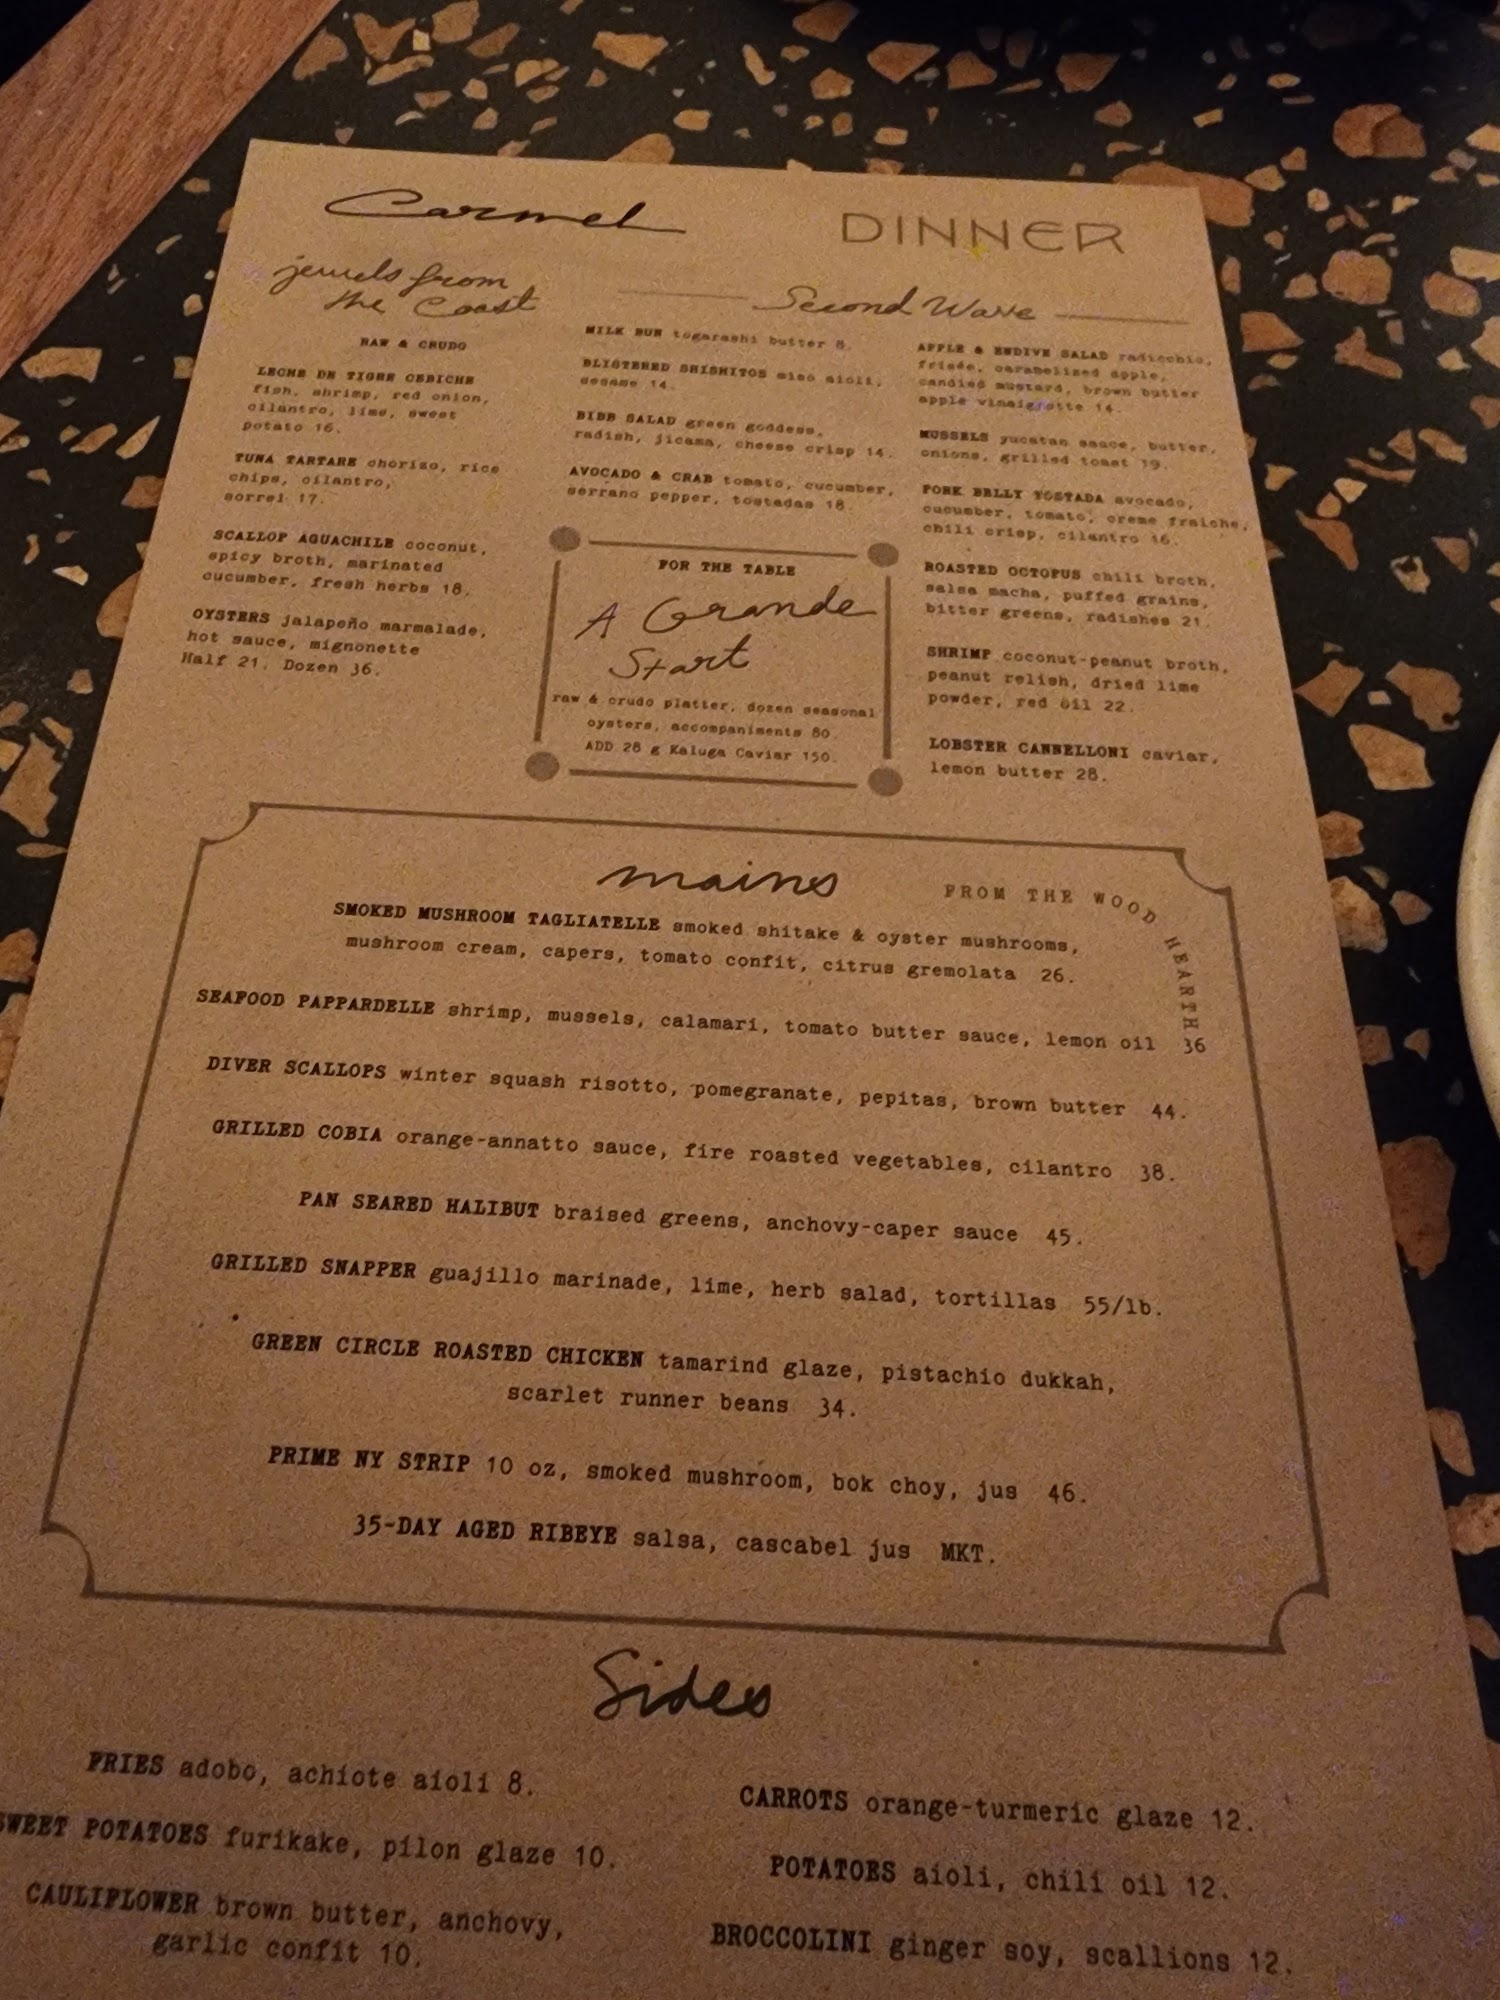 Carmel
DINNER
jewels from
the Coast
RAW & CRUDO
LECHE DE TIGRE CEBICHE
fish, shrimp, red onion,
cilantro, lime, sweet
potato 16.
TUNA TARTARE chorizo, rice
chips, cilantro,
sorrel 17.
SCALLOP AGUACHILE coconut,
spicy broth, marinated
cucumber, fresh herbs 18.
OYSTERS jalapeño marmalade,
hot sauce, mignonette
Half 21. Dozen 36.
Second Wave
MILK BUN togarashi butter 8.
BLISTERED SHISHITOS miso aioli,
sesame 14.
BIBB SALAD green goddess,
radish, jicama, cheese crisp 14.
AVOCADO & CRAB tomato, cucumber,
serrano pepper, tostadas 18.
FOR THE TABLE
A Grande
Start
raw & crudo platter, dozen seasonal
oysters, accompaniments 80.
ADD 28 g Kaluga Caviar 150.
APPLE & ENDIVE SALAD radicchio,
frisée, caramelized apple,
candied mustard, brown butter
apple vinaigrette 14.
MUSSELS yucatan sauce, butter,
onions, grilled toast 19.
PORK BELLY TOSTADA avocado,
cucumber, tomato, creme fraiche,
chili crisp, cilantro 16.
ROASTED OCTOPUS chili broth,
salsa macha, puffed grains,
bitter greens, radishes 21.
SHRIMP coconut-peanut broth,
peanut relish, dried lime
powder, red oil 22.
LOBSTER CANNELLONI caviar,
lemon butter 28.
mains
FROM THE WOOD HEARTH
SMOKED MUSHROOM TAGLIATELLE smoked shitake & oyster mushrooms,
mushroom cream, capers, tomato confit, citrus gremolata 26.
SEAFOOD PAPPARDELLE shrimp, mussels, calamari, tomato butter sauce, lemon oil 36
DIVER SCALLOPS winter squash risotto, pomegranate, pepitas, brown butter 44.
GRILLED COBIA orange-annatto sauce, fire roasted vegetables, cilantro 38.
PAN SEARED HALIBUT braised greens, anchovy-caper sauce 45.
GRILLED SNAPPER guajillo marinade, lime, herb salad, tortillas 55/lb.
GREEN CIRCLE ROASTED CHICKEN tamarind glaze, pistachio dukkah,
scarlet runner beans 34.
PRIME NY STRIP 10 oz, smoked mushroom, bok choy, jus 46.
35-DAY AGED RIBEYE salsa, cascabel jus MKT.
Sides
FRIES adobo, achiote aioli 8.
SWEET POTATOES furikake, pilon glaze 10.
CAULIFLOWER brown butter, anchovy,
garlic confit 10.
CARROTS orange-turmeric glaze 12.
POTATOES aioli, chili oil 12.
BROCCOLINI ginger soy, scallions 12.